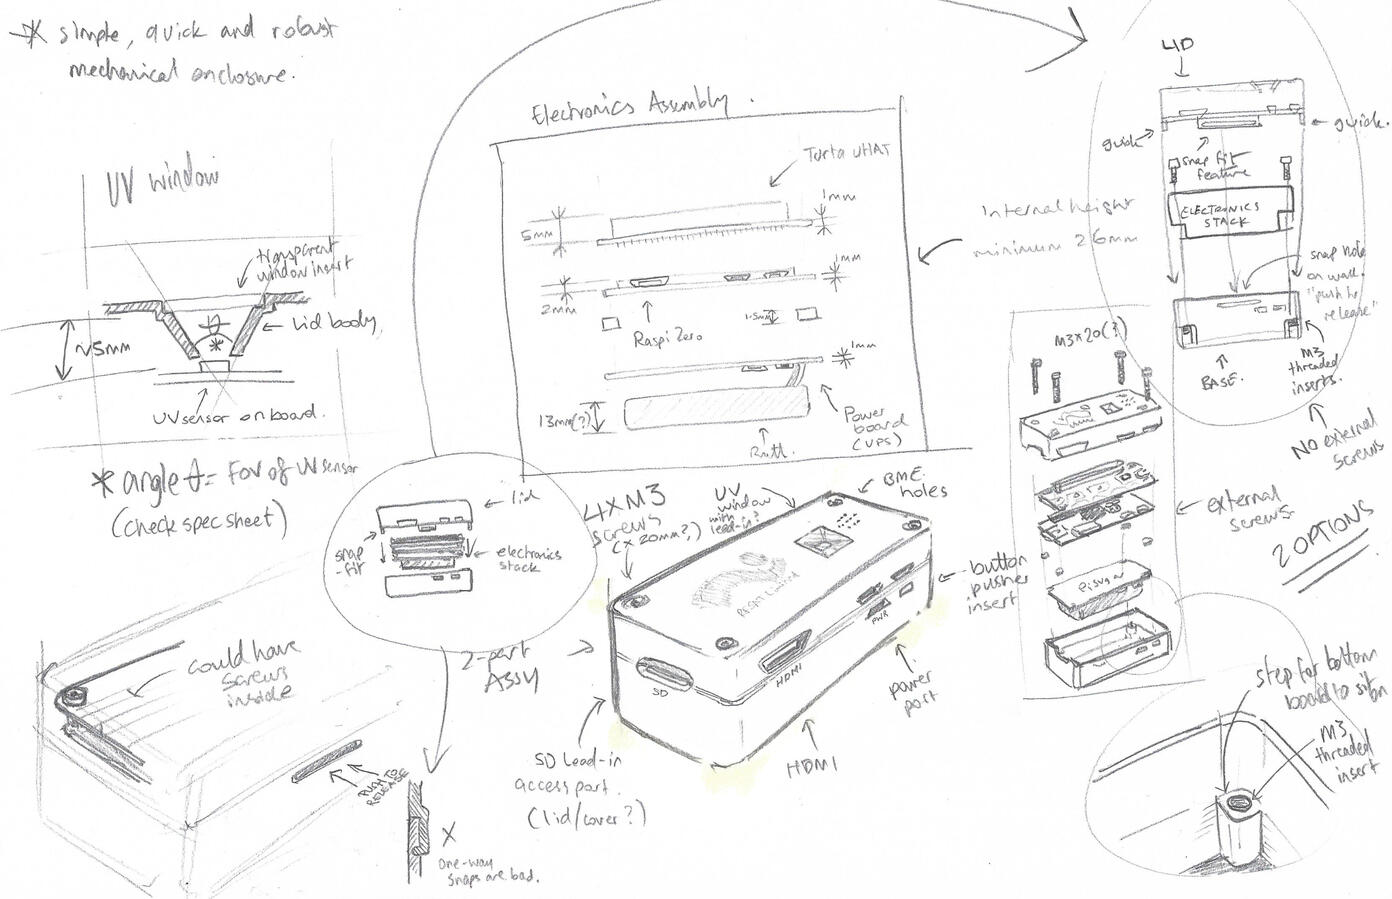 * simple, quick and robust
mechanical enclosure.
UV window
transparent
window insert
Lid body
~5mm
UV sensor on board.
* angle θ = FOV of UV sensor
(check spec sheet)
Electronics Assembly.
1mm
5mm
1mm
2mm
Raspi Zero
1.5mm
1mm
13mm(?)
Power
board
(UPS)
Batt.
Internal height
minimum 26mm
LID
guide
guide.
snap fit
feature
ELECTRONICS
STACK
snap hole
on wall.
"push to
release"
BASE.
M3
threaded
inserts.
NO external
screws
M3x20(?)
external
screws.
2 OPTIONS
PiSugar
step for bottom
board to sit on
M3
threaded
insert
lid
snap
-fit
electronics
stack
4xM3
screws
(x20mm?)
UV
window
with
lead-in?
BME
holes
button
pusher
insert
SD
HDMI
PWR
power
port
HDMI
2-part
ASSY
SD Lead-in
access port.
(lid/cover?)
could have
screws
inside
PUSH TO
RELEASE
X
One-way
snaps are bad.